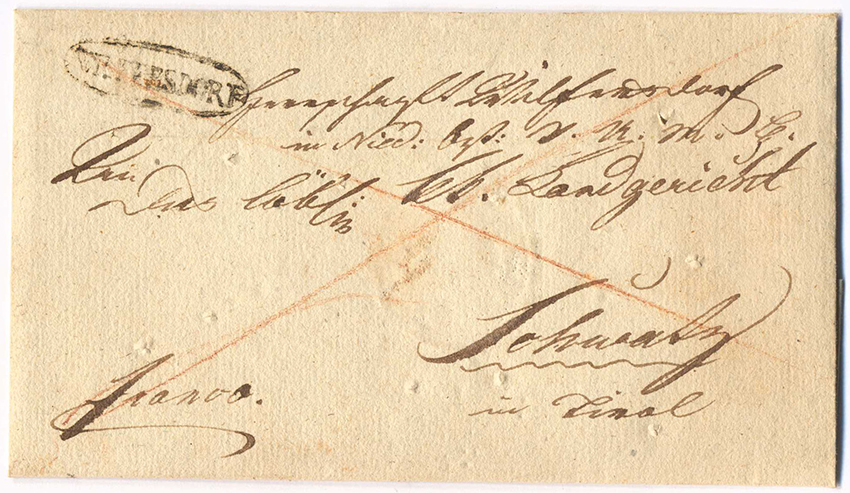 WILFESDORF
Herrschaft Wilfersdorf
in Nied: Öst: V. U. M. B.
An
Das löbl: kk. Landgericht
Schwatz
in Tirol
Franco.